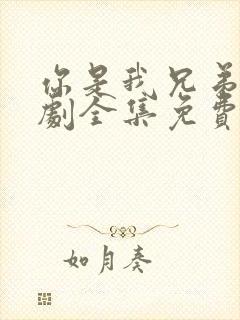 你是我兄弟
劇全集免費
如月奏